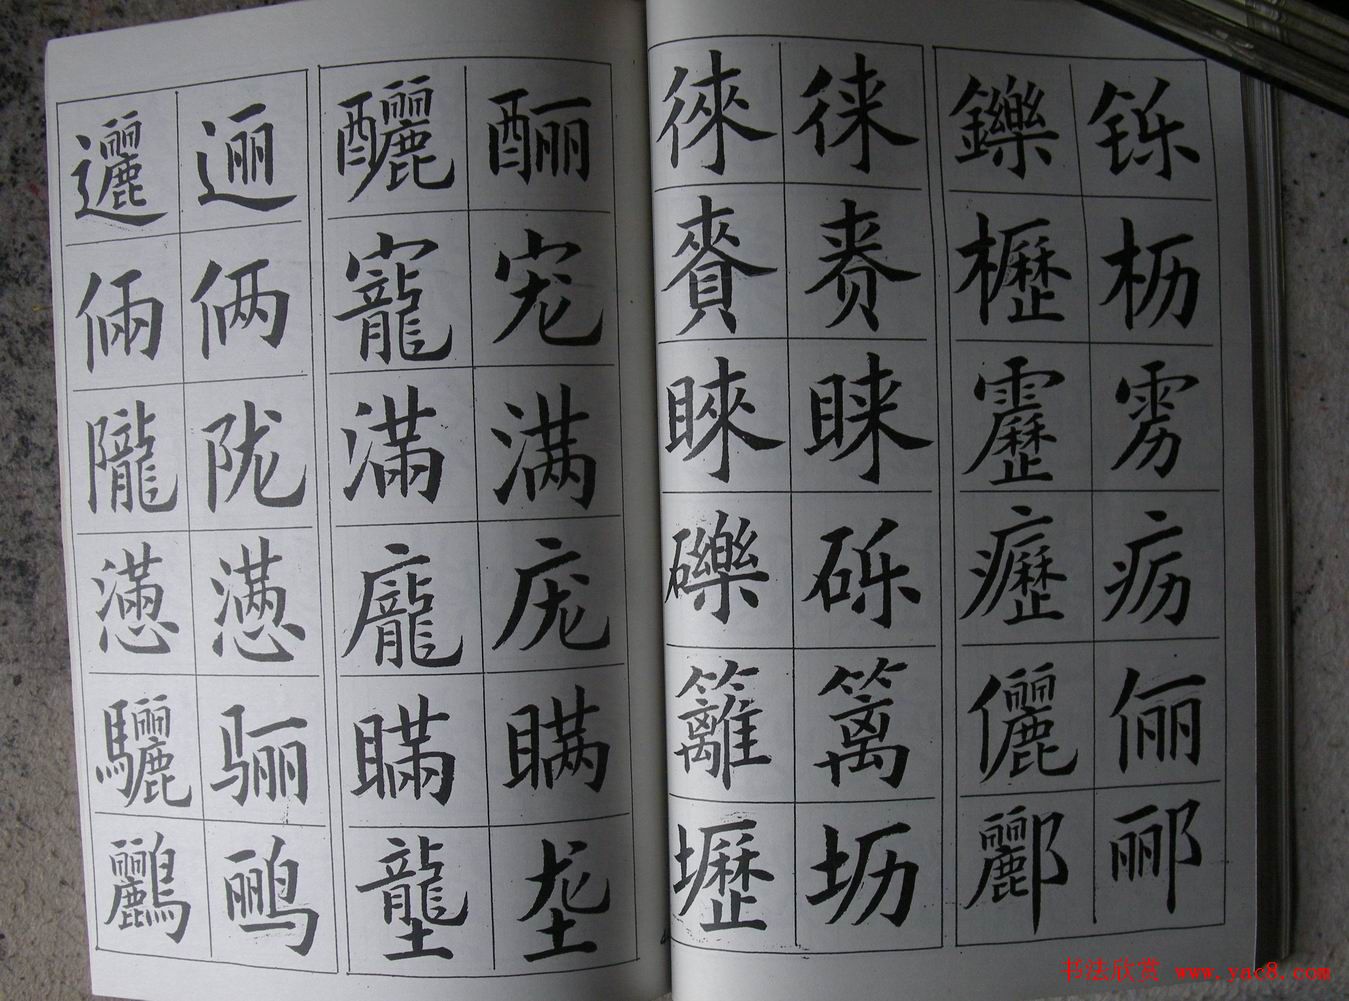 邐 逦 釃 酾
倆 俩 寵 宠
隴 陇 滿 满
懣 懑 龐 庞
驪 骊 瞞 瞒
鸝 鹂 壟 垄
徠 徕 鑠 铄
賚 赉 櫪 枥
睞 睐 靂 雳
礫 砾 癧 疬
籬 篱 儷 俪
壢 坜 酈 郦
书法欣赏 www.yac8.com